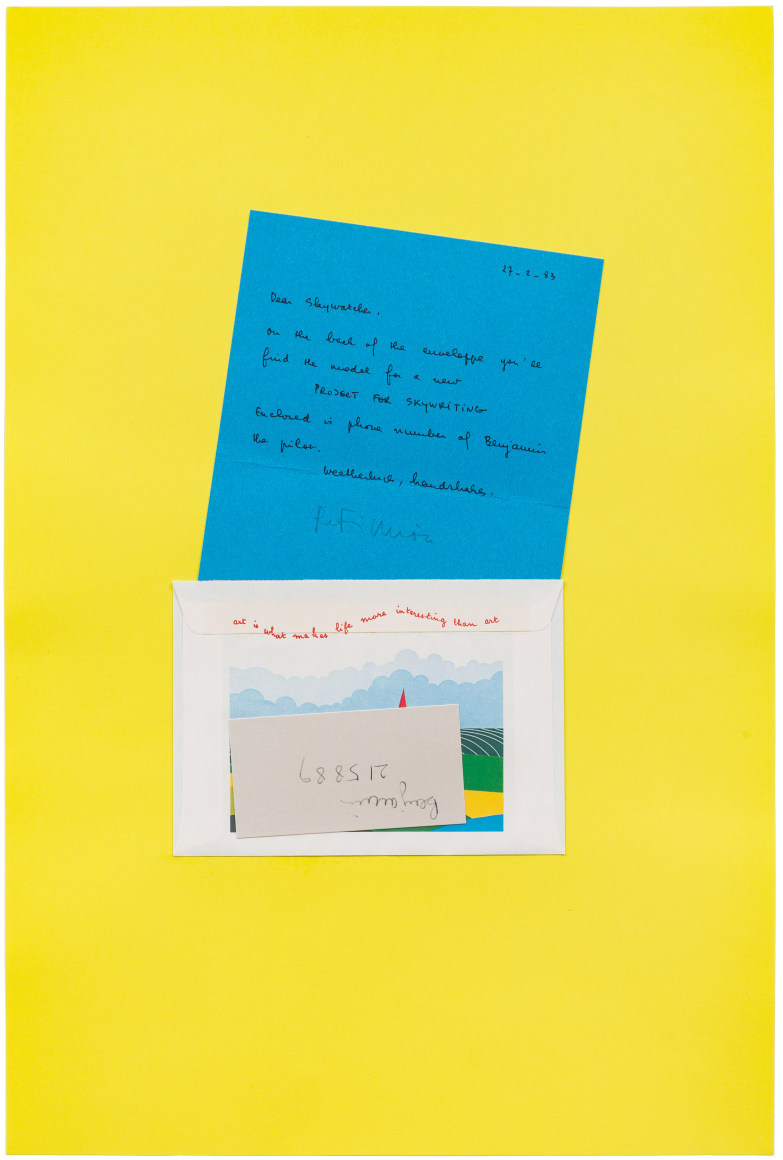 27-2-83
Dear Skywatcher,
on the back of the enveloppe you'll
find the model for a new
PROJEKT FOR SKYWRITING
Enclosed is phone number of Benjamin
the pilot.
Weatherluck, handshakes,
art is what makes life more interesting than art
Benjamin
215889